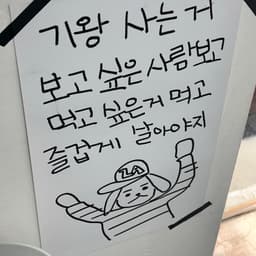 기왕 사는 거
보고 싶은 사람 보고
먹고 싶은거 먹고
즐겁게 날아야지